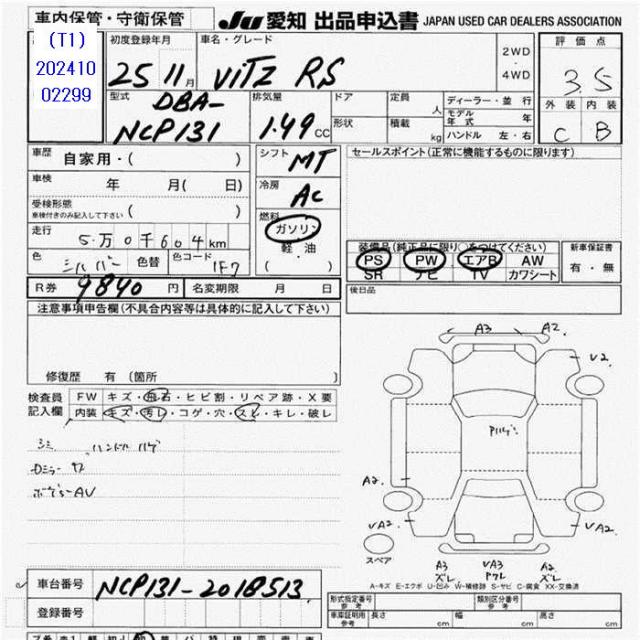 車内保管・守衛保管
Ju 愛知 出品申込書 JAPAN USED CAR DEALERS ASSOCIATION
(T1)
202410
02299
初度登録年月
25 11月
車名・グレード
VITZ RS
2WD
・
4WD
評価点
3.5
型式
DBA-
NCP131
排気量
1.49 CC
ドア
形状
定員
人
積載
kg
ディーラー・並行
モデル
年式
年
ハンドル 左・右
外装 内装
C B
車歴
自家用・( )
車検
年 月( 日)
受検形態
車検付きのみ記入して下さい ( )
走行
5万0千604km
色
シルバー
色替
色コード
1F7
シフト
MT
冷房
AC
燃料
ガソリン
軽・油
( )
セールスポイント(正常に機能するものに限ります)
装備品(純正品に限り○をつけてください)
PS PW エアB AW
SR ナビ TV カワシート
新車保証書
有・無
R券 9840 円 名変期限 月 日
後日品
注意事項申告欄(不具合内容等は具体的に記入して下さい)
修復歴 有 (箇所 )
検査員
記入欄
FW キズ・飛石・ヒビ割・リペア跡・X要
内装 キズ・汚レ・コゲ・穴・スレ・キレ・破レ
シミ ハンドルハゲ
Dミラーキズ
A3 A2
V2
A2
VA2
VA2
スペア
A3
ズレ
VA3
A2
ズレ
A-キズ E-エクボ U-凹み W-補修跡 S-サビ C-腐食 XX-交換済
車台番号 NCP131-2018513
登録番号
形式指定番号
参考
類別区分番号
参考
車庫証明用
参考
長さ cm
幅 cm
高さ cm